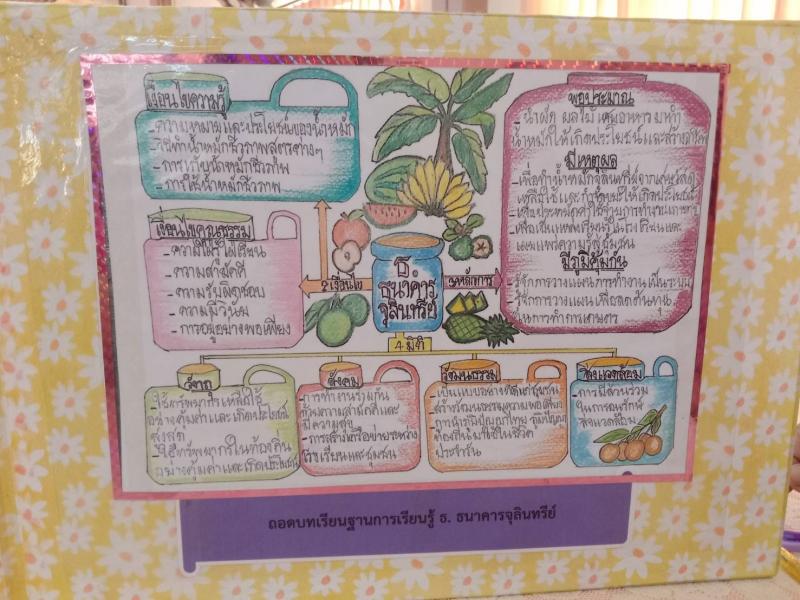 เงื่อนไขความรู้
- ความหมายและประโยชน์ของน้ำหมัก
- วิธีทำน้ำหมักชีวภาพสูตรต่างๆ
- การเก็บรักษาน้ำหมักชีวภาพ
- การใช้น้ำหมักชีวภาพ
พอประมาณ
- นำผัก ผลไม้ เศษอาหาร มาทำ
น้ำหมักให้เกิดประโยชน์และสร้าง
มีเหตุผล
- เพื่อทำน้ำหมักจุลินทรีย์จากเศษวัสดุ
เหลือใช้และกำจัดขยะให้เกิดประโยชน์
เผยแพร่ความรู้สู่ชุมชน
มีภูมิคุ้มกัน
- รู้จักการวางแผนการทำงานเป็นระบบ
- รู้จักการวางแผนเพื่อลดต้นทุน
ในการทำการเกษตร
เงื่อนไขคุณธรรม
- ความใฝ่รู้ ใฝ่เรียน
- ความสามัคคี
- ความรับผิดชอบ
- ความมีวินัย
- การอยู่อย่างพอเพียง
2 เงื่อนไข
ธ.
ธนาคาร
จุลินทรีย์
3 หลักการ
4 มิติ
วัตถุ
- ใช้ทรัพยากรเหลือใช้
อย่างคุ้มค่าและเกิดประโยชน์
สูงสุด
- ใช้ทรัพยากรในท้องถิ่น
อย่างคุ้มค่าและเกิดประโยชน์
สังคม
- การทำงานร่วมกัน
ด้วยความสามัคคีและ
มีความสุข
- การสร้างเครือข่ายระหว่าง
โรงเรียนและชุมชน
วัฒนธรรม
- เป็นแบบอย่างที่ดีแก่ชุมชน
สร้างวัฒนธรรมความพอเพียง
- การนำภูมิปัญญาไทย ภูมิปัญญา
ท้องถิ่นมาใช้ในชีวิต
ประจำวัน
สิ่งแวดล้อม
- การมีส่วนร่วม
ในการอนุรักษ์
สิ่งแวดล้อม
ถอดบทเรียนฐานการเรียนรู้ ธ. ธนาคารจุลินทรีย์